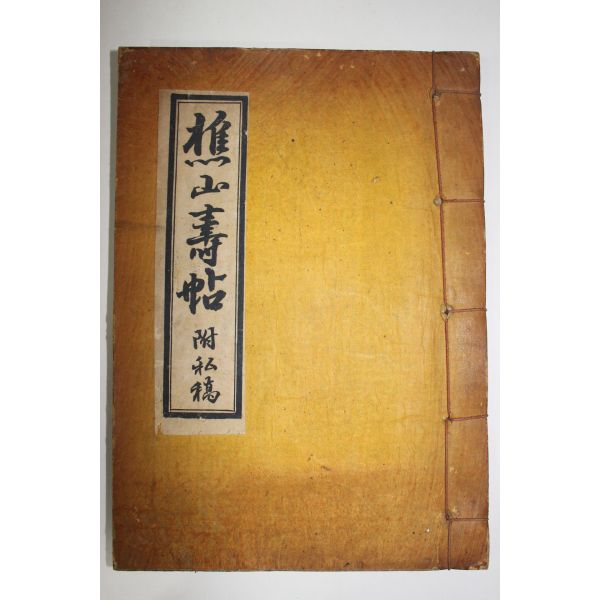 樵山壽帖
附私稿